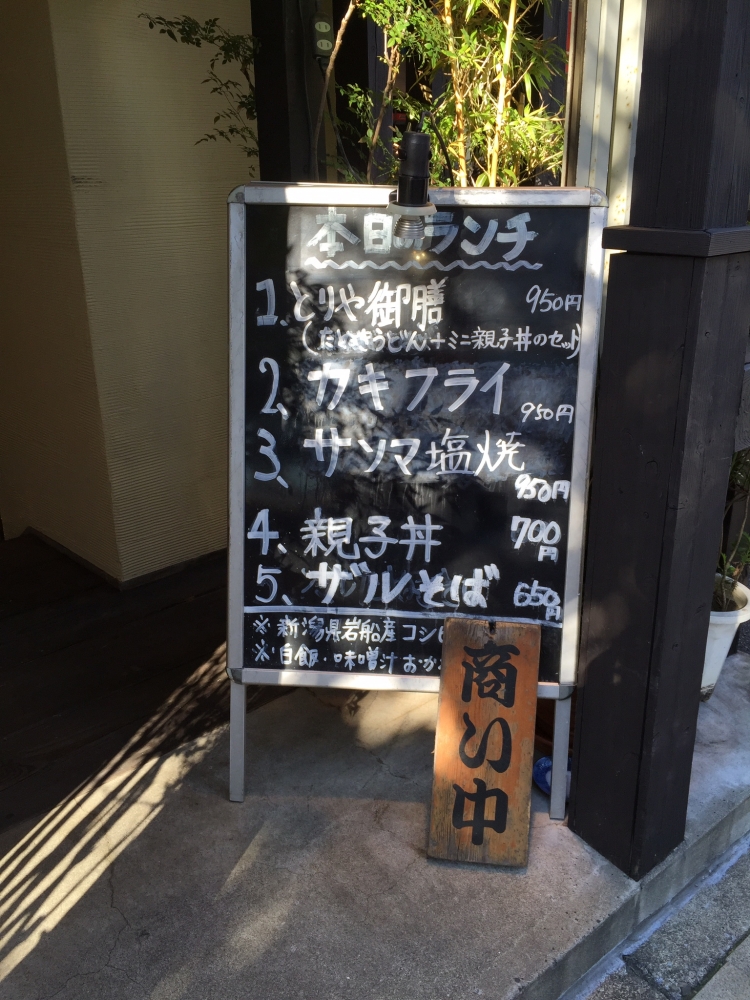 本日のランチ
1. とりや御膳 950円
(たぬきうどん+ミニ親子丼のセット)
2、カキフライ 950円
3、サンマ塩焼 950円
4、親子丼 700円
5、ザルそば 650円
※新潟県岩船産コシヒ
※白飯・味噌汁おか
商い中